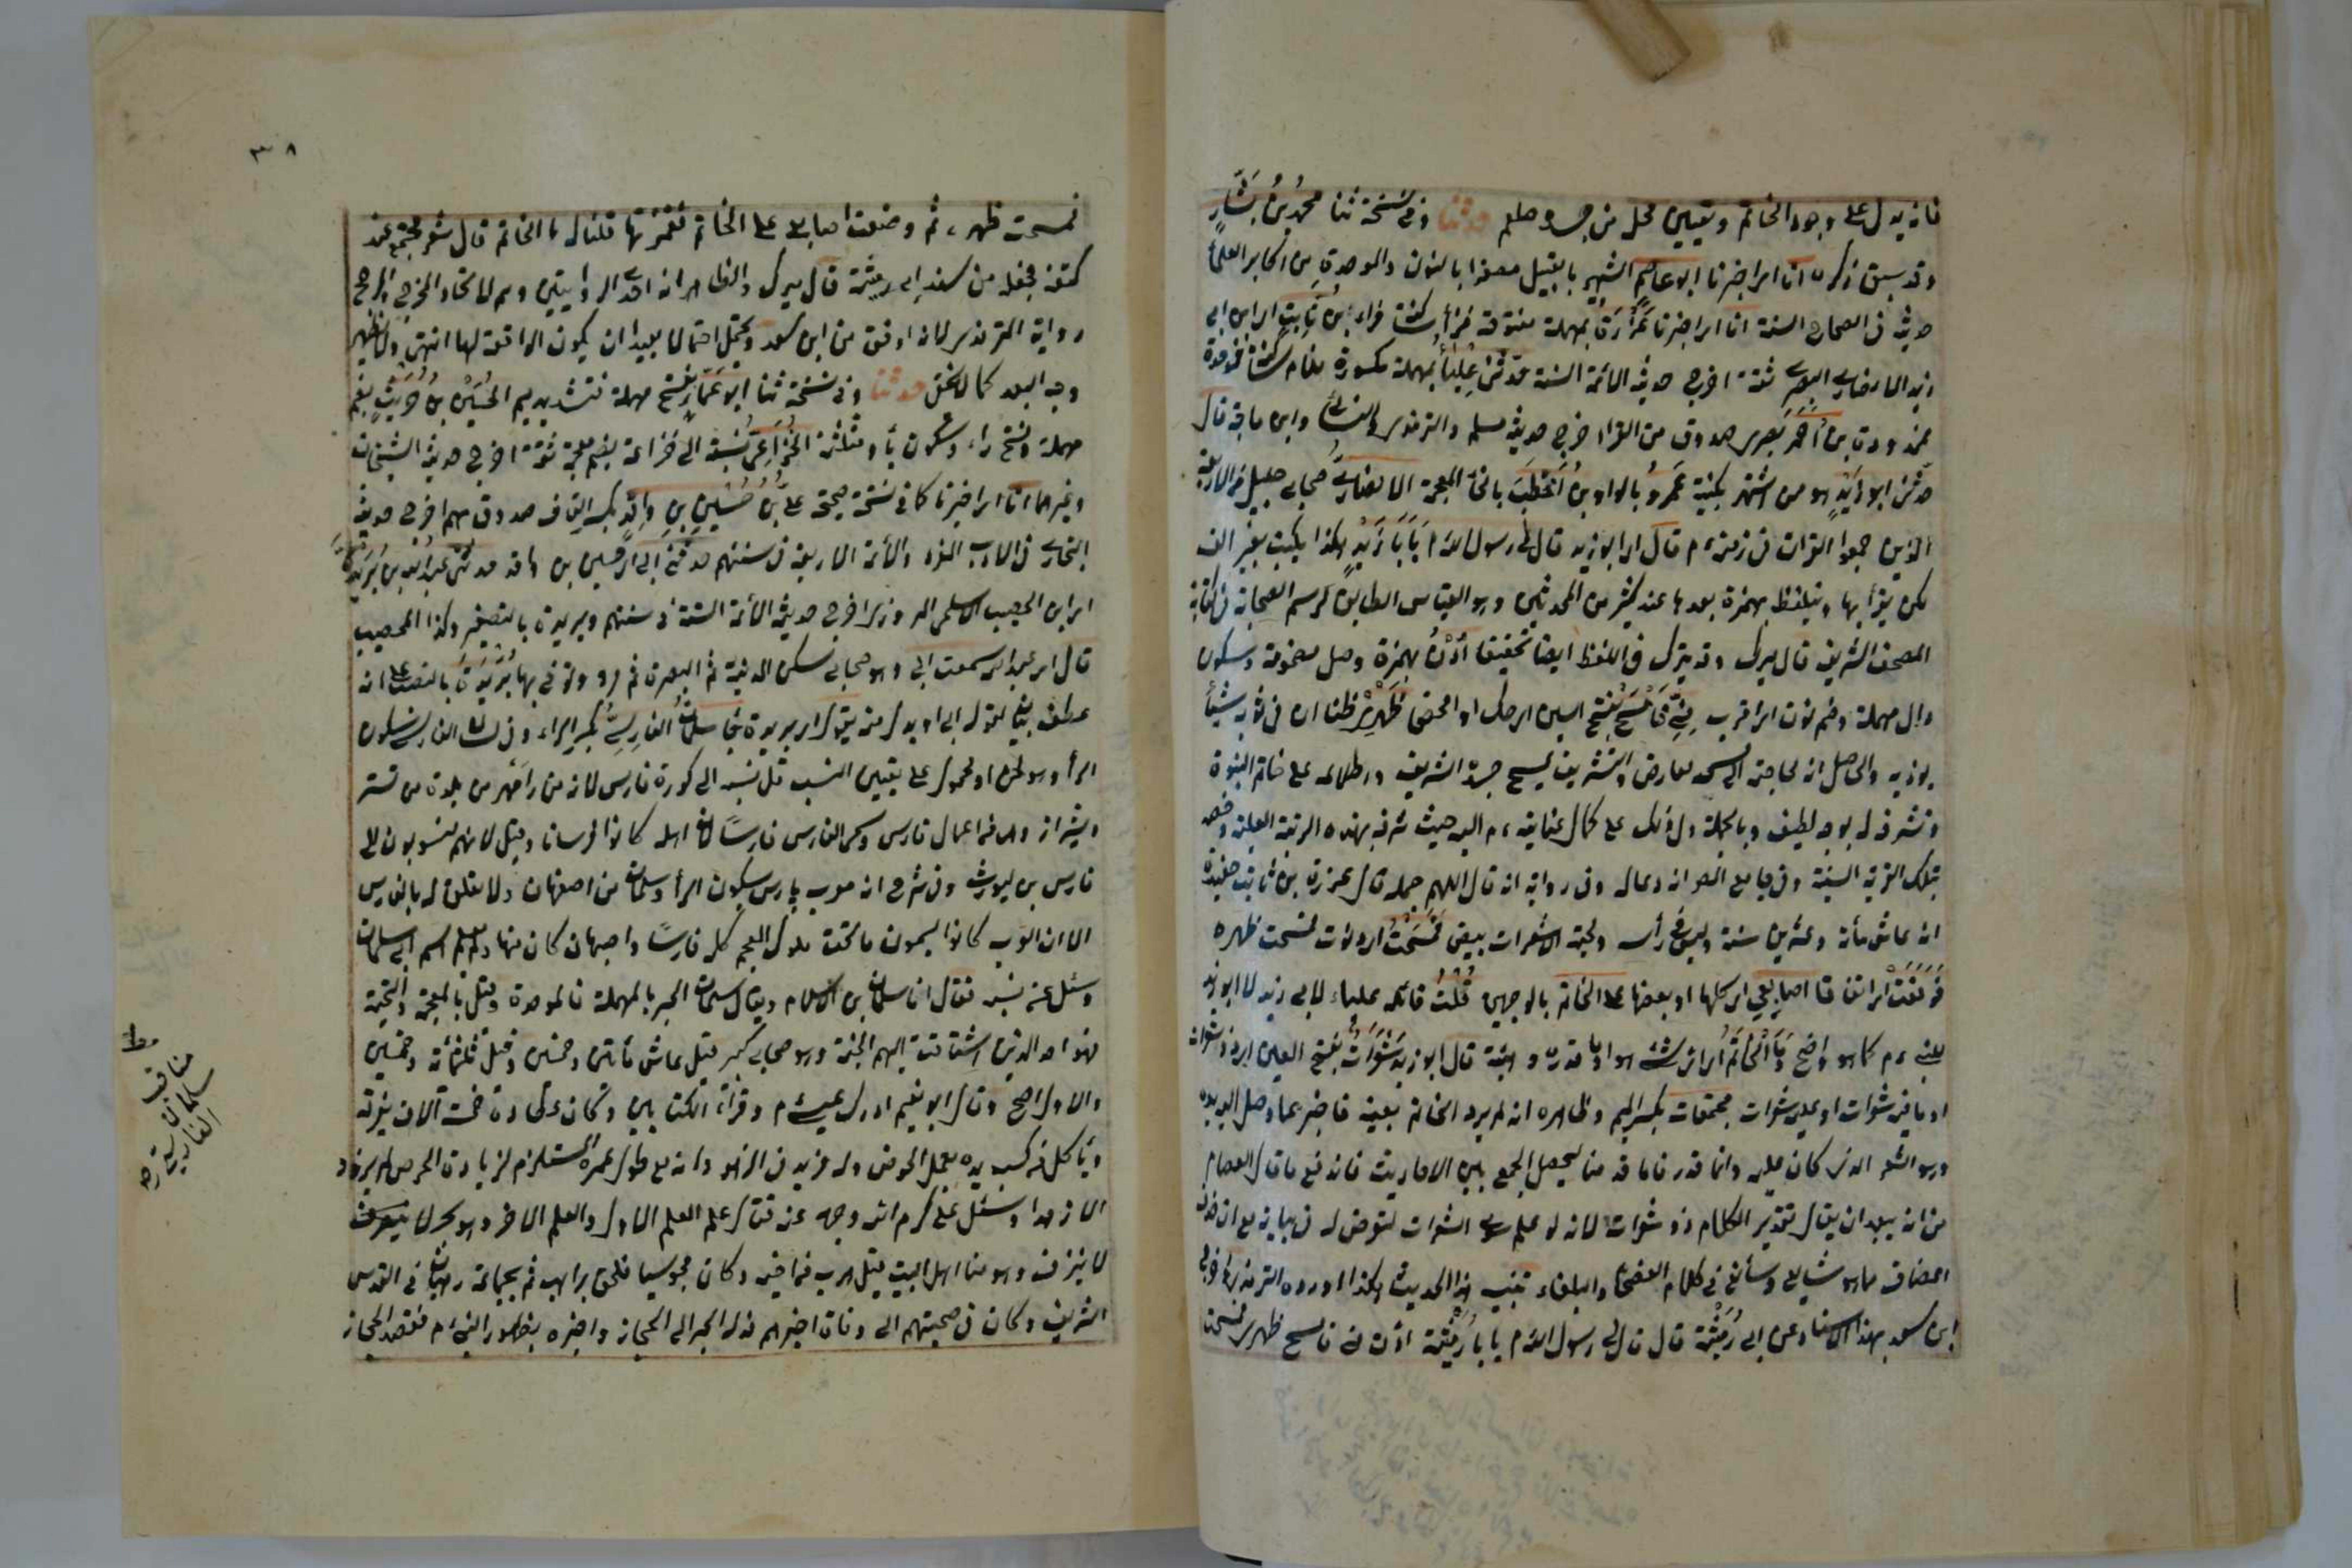 فانه يدل على وجود الخاتم وتعيين محل من جسده صلعم حدثنا وفي نسخة ثنا محمد بن بشار
وقد سبق ذكره انا اي اخبرنا ابو عاصم الشهير بالنبيل مصغرا بالنون والموحدة من اكابر العلماء
حديثه في الصحاح الستة انا اي اخبرنا عزرة بمهملة مفتوحة فزاي ساكنة فراء بن ثابت اي ابن ابي
زيد الانصاري البصري ثقة اخرج حديثه الائمة الستة حدثني علباء بمهملة مكسورة فلام ساكنة فموحدة
ممدودة بن احمر بصري صدوق من القراء اخرج حديثه مسلم والترمذي والنسائي وابن ماجة قال
حدثني ابو زيد هو من اشتهر بكنيته عمرو بالواو بن اخطب بالخاء المعجمة الانصاري صحابي جليل من الاربعة
الذين جمعوا القران في زمنه م قال اي ابو زيد قال لي رسول الله م يا با زيد هكذا يكتب بغير الف
لكن يقرأ بها ويتلفظ بهمزة بعدها عند كثير من المحدثين وهو القياس المطابق لرسم الصحابة في كتابة
المصحف الشريف قال ميرك وقد يترك في اللفظ ايضا تخفيفا أدن بهمزة وصل مضمومة وسكون
دال مهملة وضم نون اي اقرب مني فامسح بفتح السين اي حك او المحض ظهري ظنا ان في ثوبه شيئا
يوذيه والحاصل انه لحاجته الى المسح لعارض والتشريف بمسح جسده الشريف واطلاعه على خاتم النبوة
وتشرفه له بوجه لطيف وبالجملة دل ذلك على كمال عنايته م اليه حيث شرفه بهذه الرتبة العلية وخصه
بتلك القربة السنية وفي جامع المص انه دعا له وفي رواية انه قال اللهم جمله قال عزرة بن ثابت حفيده
انه عاش مأة وعشرين سنة وليس في رأسه ولحيته الا شعرات بيض فمسحت اي دنوت فمسحت ظهره
فوقعت اي اتفاقا اصابعي اي كلها او بعضها على الخاتم بالوجهين قلت قائله علباء لابي زيد لا ابو زيد
للنبي م كما هو واضح وما الخاتم اي اي شئ هو او ما قدره وهيئته قال ابو زيد شعرات بفتح العين اي ذو شعرات
او ما فيه شعرات او عليه شعرات مجتمعات بكسر الميم وظاهره انه لم يرد الخاتم بعينه فاخبر عما وصل اليه يده
وهو الشعر الذي كان عليه وانما قدرنا ما قدمنا ليحصل الجمع بين الاحاديث فاندفع ما قال العصام
من انه يبعد ان يقال تقدير الكلام ذو شعرات لانه لو علم سوى الشعرات لتعرض له في بيانه مع ان حذف
المضاف مما هو شايع وسائغ في كلام الفصحاء والبلغاء تنبيه هذا الحديث هكذا اورده الترمذي واخرجه
ابن سعد بهذا الاسناد عن ابي رمثة قال قال لي رسول الله م يا با رمثة ادن مني فامسح ظهري فمسحت
٣٨
فمسحت ظهره ثم وضعت اصابعي على الخاتم فغمزتها قلنا له ما الخاتم قال شعر مجتمع عند
كتفه فجعله من مسند ابي رمثة قال ميرك والظاهر انه احدى الروايتين وهم لاتحاد المخرج والراجح
رواية الترمذي لانه اوفق من ابن سعد ويحتمل احتمالا بعيدا ان يكون الواقعة لهما انتهى ولا يظهر
وجه البعد كما لا يخفى حدثنا وفي نسخة ثنا ابو عمار بفتح مهملة فتشديد ميم الحسين بن حريث بضم
مهملة وفتح راء وسكون ياء ومثلثة الخزاعي نسبة الى خزاعة بضم معجمة ثقة اخرج حديثه الشيخان
وغيرهما انا اي اخبرنا كما في نسخة صحيحة علي بن حسين بن واقد بكسر القاف صدوق يهم اخرج حديثه
البخاري في الادب المفرد والائمة الاربعة في سننهم حدثني ابي اي حسين بن واقد حدثني عبد الله بن بريدة
اي ابن الحصيب الاسلمي المروزي اخرج حديثه الائمة الستة في سننهم وبريدة بالتصغير وكذا الحصيب
قال اي عبد الله سمعت ابي وهو صحابي سكن المدينة ثم البصرة ثم مرو وتوفي بها بريدة بالنصب على انه
عطف بيان لقوله ابي او بدل منه يقول اي بريدة جاء سلمان الفارسي بكسر الراء وفي الفارسي بسكون
الراء وهو لحن او محمول على تغيير النسب قيل نسبه الى كورة فارس لانه من رامهرمز بلدة من تستر
وشيراز وهي من اعمال فارس وسمي الفارس فارسا لان اهله كانوا فرسانا وقيل لانهم منسوبون الى
فارس بن كيومرث وفي شرح انه معرب پارس بسكون الراء وسلمان من اصفهان ولا تعلق له بالفارس
الا ان العرب كانوا يسمون ما تحت ملوك العجم كله فارسا واصبهان كان منها ولم يعلم اسم ابي سلمان
وسئل عن نسبه فقال انا سلمان بن الاسلام ويقال سلمان الحبر بالمهملة فالموحدة وقيل بالمعجمة والتحتية
فهو احد الذين اشتاقت اليهم الجنة وهو صحابي كبير قيل عاش مأتين وخمسين وقيل ثلثمائة وخمسين
والاول اصح وقال ابو نعيم ادرك عيسى م وقرأ الكتابين وكان عطاؤه خمسة آلاف يفرقه
ويأكل من كسب يده بعمل الخوص وله مزيد في الزهد فانه مع طول عمره المستلزم لزيادة الحرص لم يزدد
الا زهدا وسئل علي كرم الله وجهه عنه فقال علم العلم الاول والعلم الاخر وهو بحر لا
لا ينزف وهو منا اهل البيت قيل هرب من اخيه وكان مجوسيا فلحق براهب ثم بجماعة رهبان في القدس
الشريف وكان في صحبتهم الى وفاة اخيرهم فدله الحبر الى الحجاز واخبره بظهور النبي م فقصد الحجاز
مناقب
سلمان
الفارسي